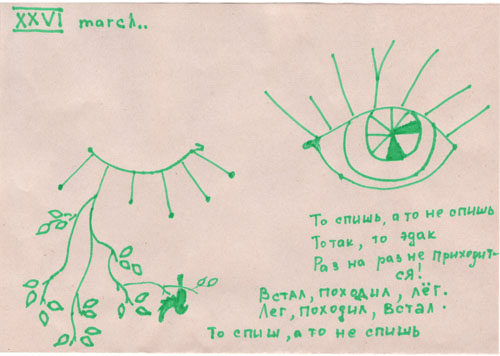 XXVI march..
То спишь, а то не спишь
Тотак, то эдак
Раз на раз не приходит-
ся!
Встал, походил, лёг.
Лег, походил, встал.
То спиш, а то не спишь